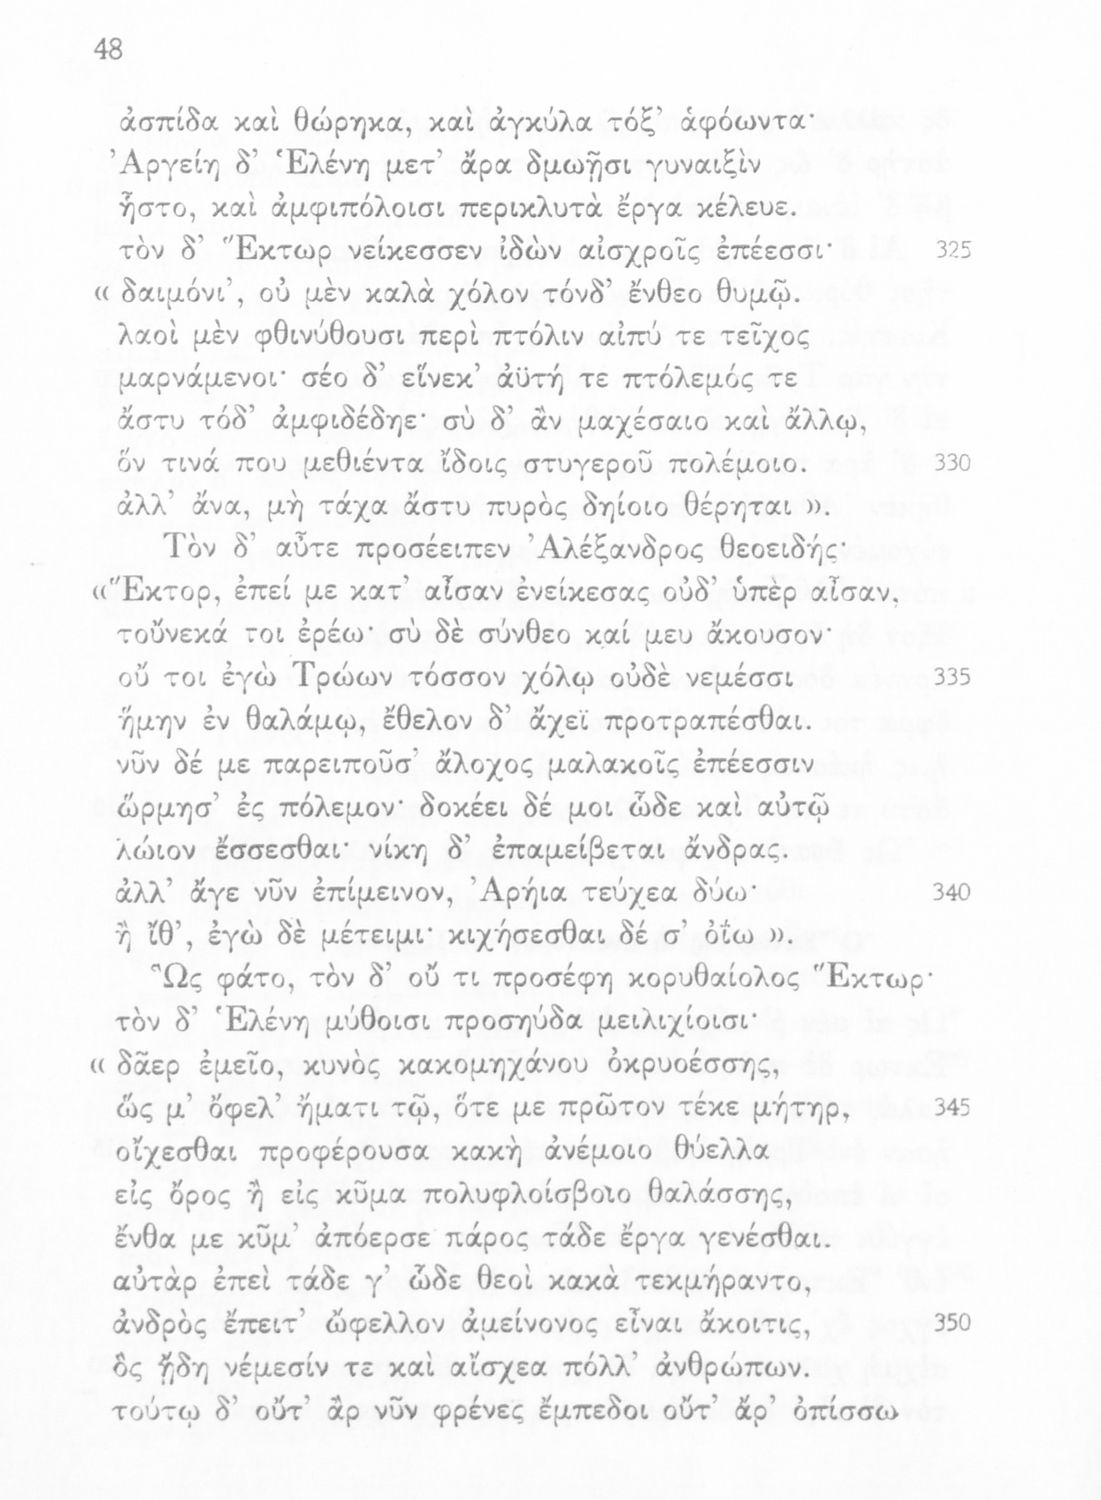 48
ἀσπίδα καὶ θώρηκα, καὶ ἀγκύλα τόξ’ ἁφόωντα·
’Αργείη δ’ ‘Ελένη μετ’ ἄρα δμωῇσι γυναιξὶν
ἧστο, καὶ ἀμφιπόλοισι περικλυτὰ ἔργα κέλευε.
τὸν δ’ Ἕκτωρ νείκεσσεν ἰδὼν αἰσχροῖς ἐπέεσσι· 325
« δαιμόνι’, οὐ μὲν καλὰ χόλον τόνδ’ ἔνθεο θυμῷ.
λαοὶ μὲν φθινύθουσι περὶ πτόλιν αἰπύ τε τεῖχος
μαρνάμενοι· σέο δ’ εἵνεκ’ ἀϋτή τε πτόλεμός τε
ἄστυ τόδ’ ἀμφιδέδηε· σὺ δ’ ἂν μαχέσαιο καὶ ἄλλῳ,
ὅν τινά που μεθιέντα ἴδοις στυγεροῦ πολέμοιο. 330
ἀλλ’ ἄνα, μὴ τάχα ἄστυ πυρὸς δηίοιο θέρηται ».
Τὸν δ’ αὖτε προσέειπεν ’Αλέξανδρος θεοειδής·
« Ἕκτορ, ἐπεί με κατ’ αἶσαν ἐνείκεσας οὐδ’ ὑπὲρ αἶσαν,
τοὔνεκά τοι ἐρέω· σὺ δὲ σύνθεο καί μευ ἄκουσον·
οὔ τοι ἐγὼ Τρώων τόσσον χόλῳ οὐδὲ νεμέσσι 335
ἥμην ἐν θαλάμῳ, ἔθελον δ’ ἄχεϊ προτραπέσθαι.
νῦν δέ με παρειποῦσ’ ἄλοχος μαλακοῖς ἐπέεσσιν
ὥρμησ’ ἐς πόλεμον· δοκέει δέ μοι ὧδε καὶ αὐτῷ
λώιον ἔσσεσθαι· νίκη δ’ ἐπαμείβεται ἄνδρας.
ἀλλ’ ἄγε νῦν ἐπίμεινον, ’Αρήια τεύχεα δύω· 340
ἢ ἴθ’, ἐγὼ δὲ μέτειμι· κιχήσεσθαι δέ σ’ ὀΐω ».
Ὣς φάτο, τὸν δ’ οὔ τι προσέφη κορυθαίολος Ἕκτωρ·
τὸν δ’ ‘Ελένη μύθοισι προσηύδα μειλιχίοισι·
« δᾶερ ἐμεῖο, κυνὸς κακομηχάνου ὀκρυοέσσης,
ὥς μ’ ὄφελ’ ἤματι τῷ, ὅτε με πρῶτον τέκε μήτηρ, 345
οἴχεσθαι προφέρουσα κακὴ ἀνέμοιο θύελλα
εἰς ὄρος ἢ εἰς κῦμα πολυφλοίσβοιο θαλάσσης,
ἔνθα με κῦμ’ ἀπόερσε πάρος τάδε ἔργα γενέσθαι.
αὐτὰρ ἐπεὶ τάδε γ’ ὧδε θεοὶ κακὰ τεκμήραντο,
ἀνδρὸς ἔπειτ’ ὤφελλον ἀμείνονος εἶναι ἄκοιτις, 350
ὃς ᾔδη νέμεσίν τε καὶ αἴσχεα πόλλ’ ἀνθρώπων.
τούτῳ δ’ οὔτ’ ἂρ νῦν φρένες ἔμπεδοι οὔτ’ ἄρ’ ὀπίσσω